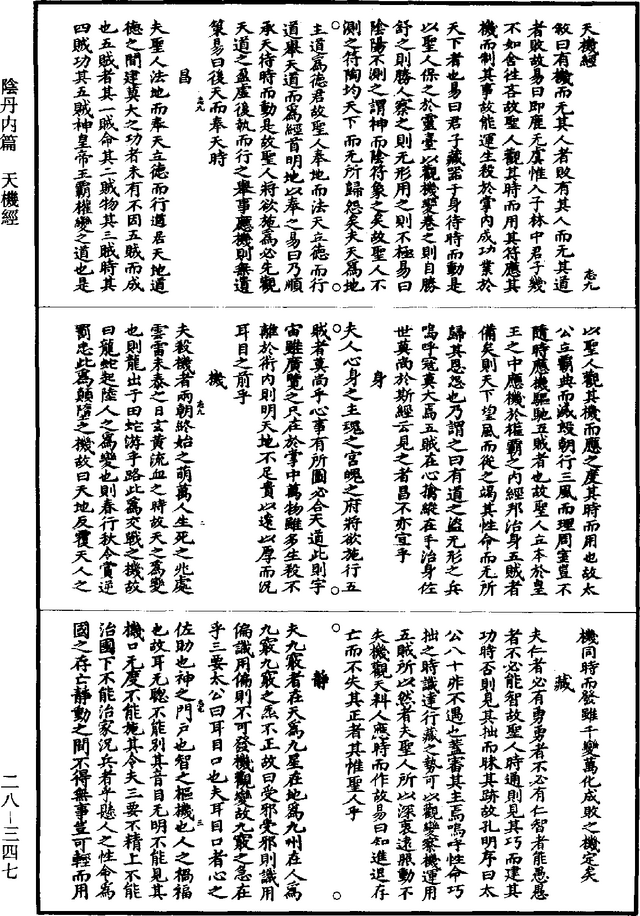 陰丹内篇 天機經
二八—三四七
天機經 志九
敘曰有機而无其人者敗有其人而无其道
者敗故易曰即鹿无虞惟入于林中君子幾
不如舍往吝故聖人觀其時而用其符應其
機而制其事故能運生殺於掌內成功業於
天下者也易曰君子藏器于身待時而動是
以聖人保之於靈臺以觀機變卷之則自勝
舒之則勝人察之則无形用之則不極易曰
陰陽不測之謂神而陰符象之矣故聖人不
測之符陶均天下而无所歸怨矣夫天爲地
主道爲德君故聖人奉地而法天立德而行
道舉天道而爲經首明地以奉之易曰乃順
承天待時而動是故聖人將欲施爲必先觀
天道之盈虛後執而行之舉事應機則無遺
策易曰後天而奉天時
昌
夫聖人法地而奉天立德而行道居天地道
德之間建莫大之功者未有不因五賊而成
也五賊者其一賊命其二賊物其三賊時其
四賊功其五賊神皇帝王霸權變之道也是
以聖人觀其機而應之度其時而用也故太
公立霸典而滅殷朝行三風而理周室豈不
隨時應機驅馳五賊者也故聖人立本於皇
王之中應機於權霸之內經邦治身五賊者
備矣則天下望風而從之竭其性命而无所
歸其恩怨也乃謂之曰有道之盜无形之兵
嗚呼寇莫大焉五賊在心擒縱在手治身佐
世莫尚於斯經云見之者昌不亦宜乎
身
夫人心身之主魂之宮魄之府將欲施行五
賊者莫尚乎心事有所圖必合天道此則宇
宙雖廣覽之只在於掌中萬物雖多生殺不
離於術內則明天地不足貴以遠以厚而況
耳目之前乎
機
夫殺機者兩朝終始之萌萬人生死之兆處
雲雷未泰之日玄黃流血之時故天之爲變
也則龍出于田蛇游乎路此爲交戰之機故
曰龍蛇起陸人之爲變也則春行秋令賞逆
罰忠此爲顛隕之機故曰天地反覆天人之
機同時而發雖千變萬化成敗之機定矣
藏
夫仁者必有勇勇者不必有仁智者能愚愚
者不必能智故聖人時通則見其巧而建其
功時否則見其拙而昧其跡故孔明序曰太
公八十非不遇也蓋審其主焉嗚呼性命巧
拙之時識達行藏之勢可以觀變察機運用
五賊所以然者夫聖人所以深衷遠照動不
失機觀天料人應時而作故易曰知進退存
亡而不失其正者其惟聖人乎
靜
夫九竅者在天爲九星在地爲九州在人爲
九竅九竅之炁不正故曰受邪受邪則識用
偏識用偏則不可發機觀變故九竅之急在
乎三要太公曰耳目口也夫耳目口者心之
佐助也神之門戶也智之樞機也人之禍福
也故耳无聰不能別其音目无明不能見其
機口无度不能施其令夫三要不精上不能
治國下不能治家況兵者乎懸人之性命爲
國之存亡靜動之間不得無事豈可輕而用